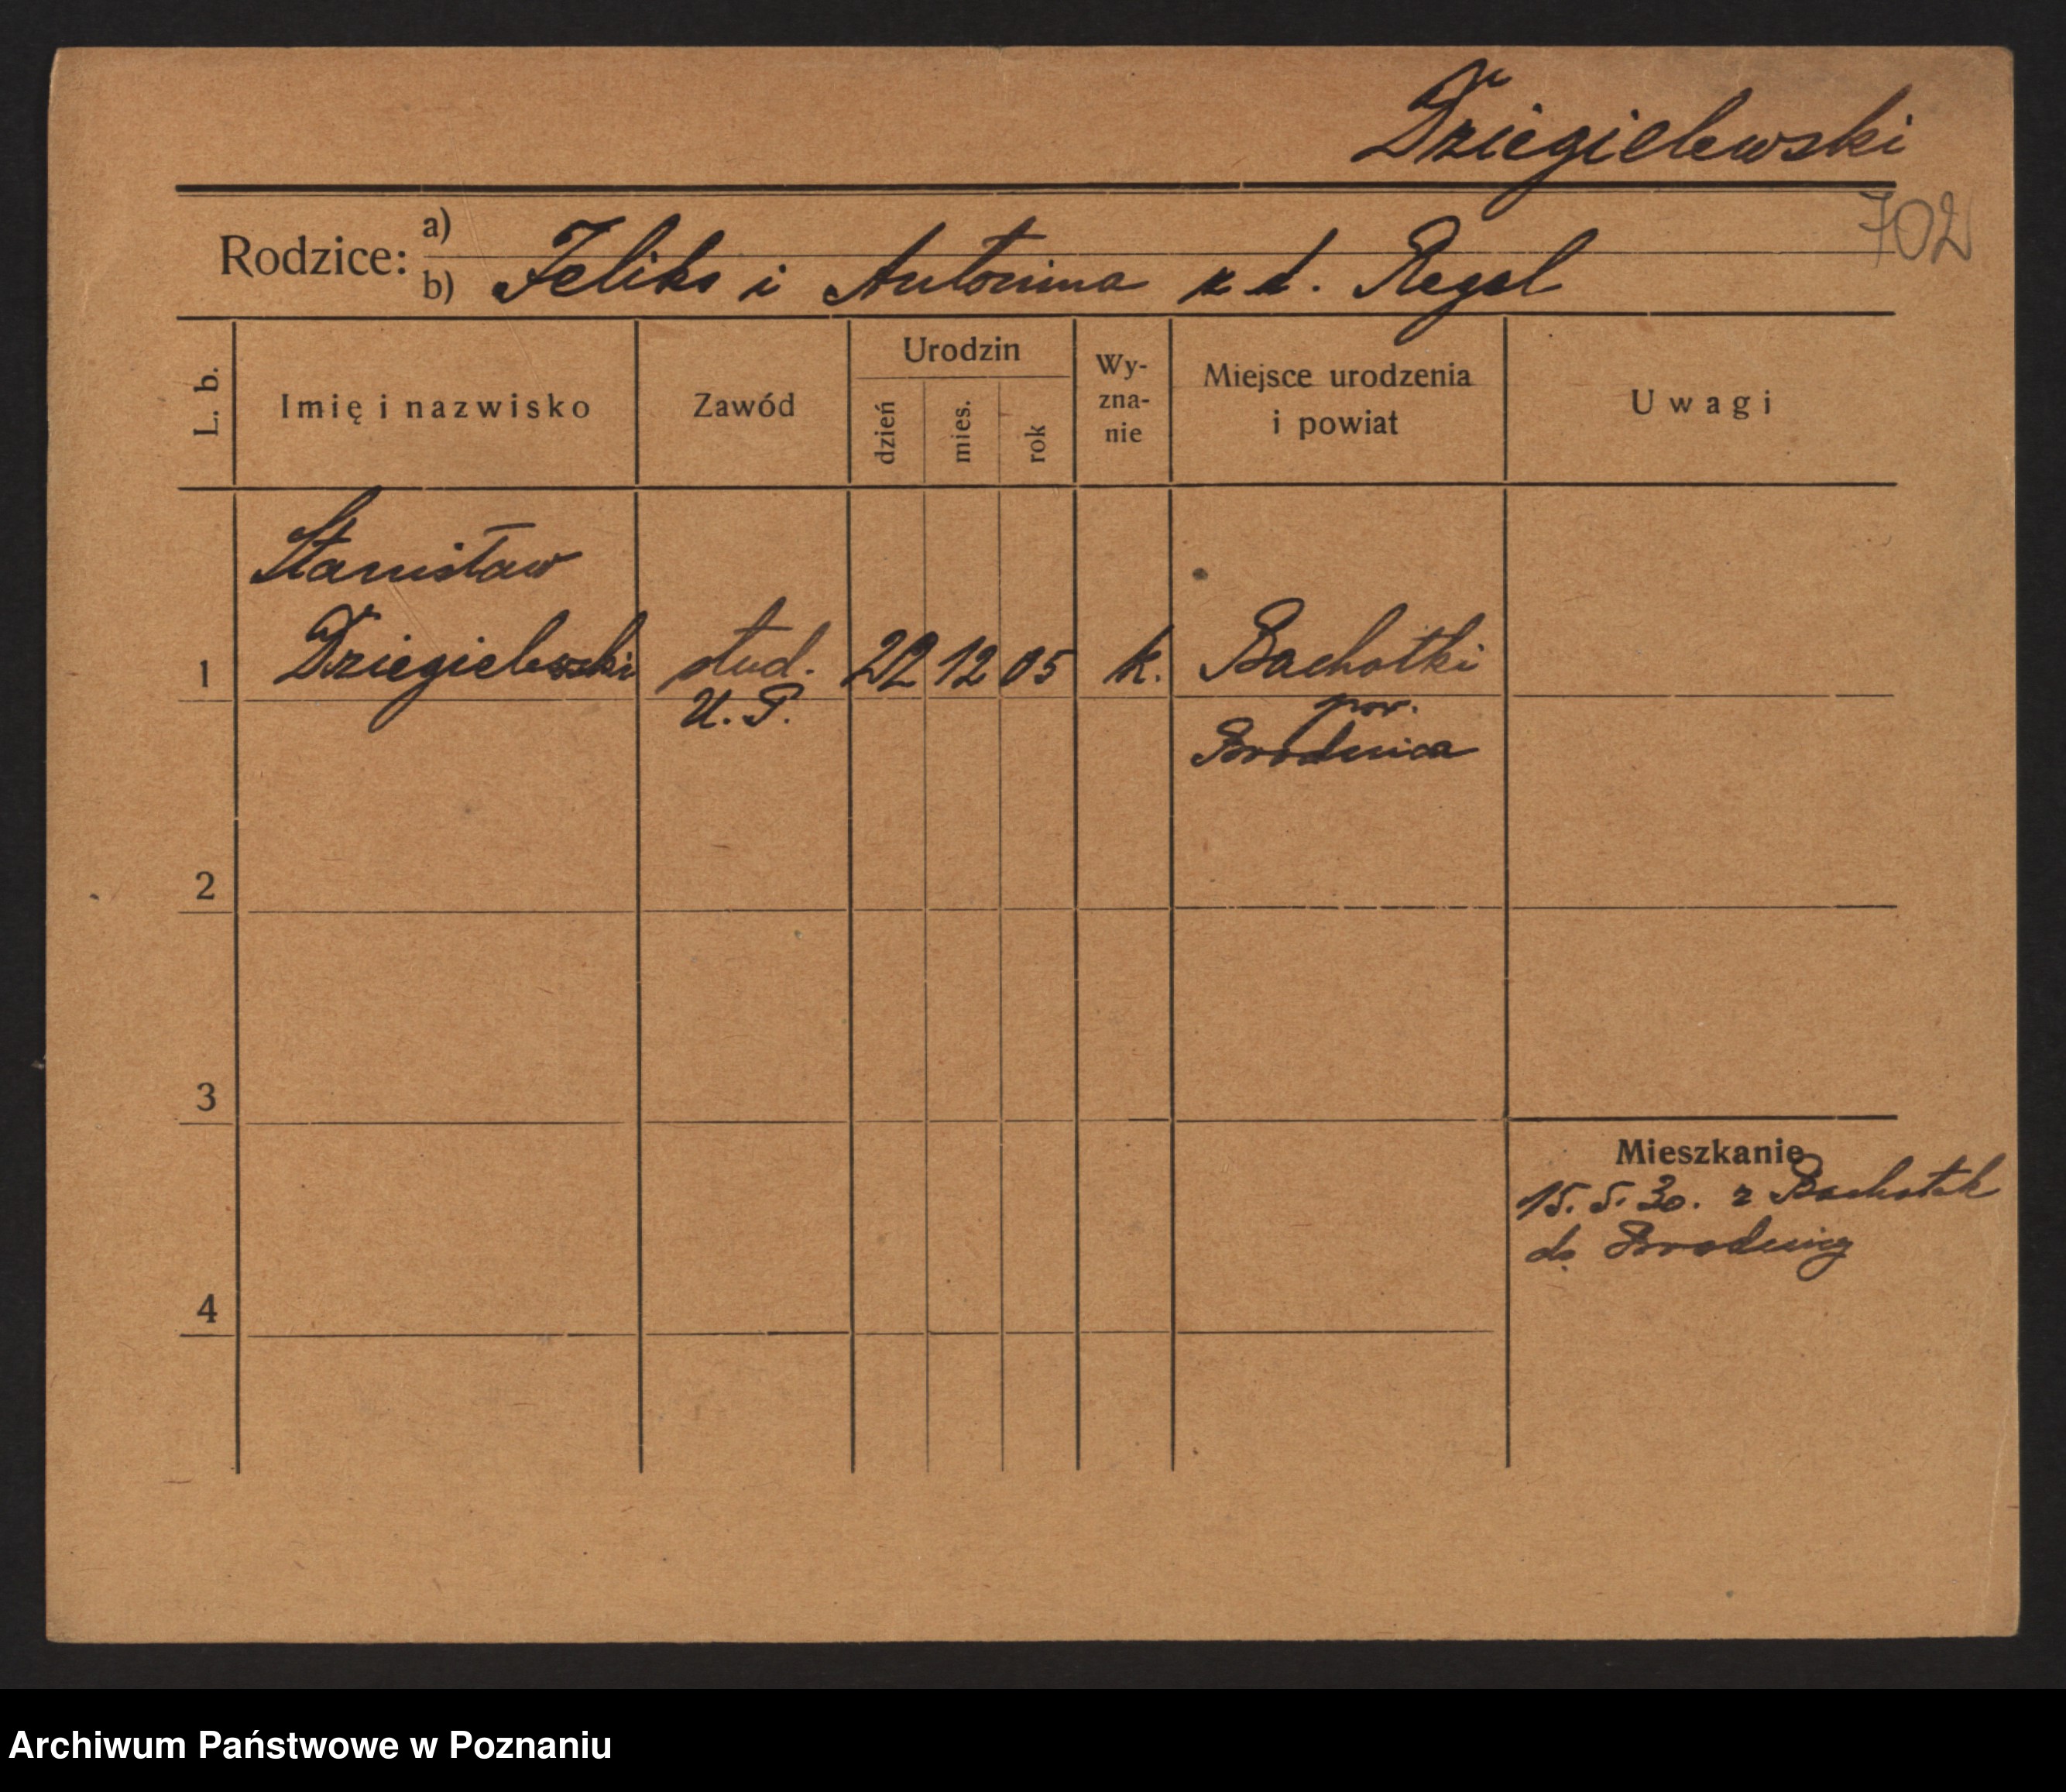 Dziegielewski
702
Rodzice: a)
b) Feliks i Antonina z d. Regel
L. b.
Imię i nazwisko
Zawód
Urodzin
dzień
mies.
rok
Wy-
zna-
nie
Miejsce urodzenia
i powiat
Uwagi
Stanisław
1 Dziegielewski stud. 22 12 05 k. Bachotki
U. P. pow.
Brodnica
2
3
Mieszkanie
15. 5. 30. z Bachotek
do Brodnicy
4
Archiwum Państwowe w Poznaniu